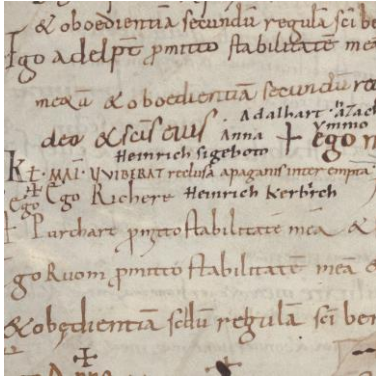 & oboedientiā secundū regulā sci be
Ego adelpt pmitto stabilitatē meā
meūū & oboedientiā secundū re
deo & scis eius. Adalhart
Anna ymmo
Heinrich sigeboto + ego
Kt. MAI. VVIBERAT reclusā apaganis interempta
Ego Richere Heinrich
+ Purchart pmitto stabilitatē meā &
go Ruom pmitto stabilitatē meā &
& obędientiā scdū regulā sci ber